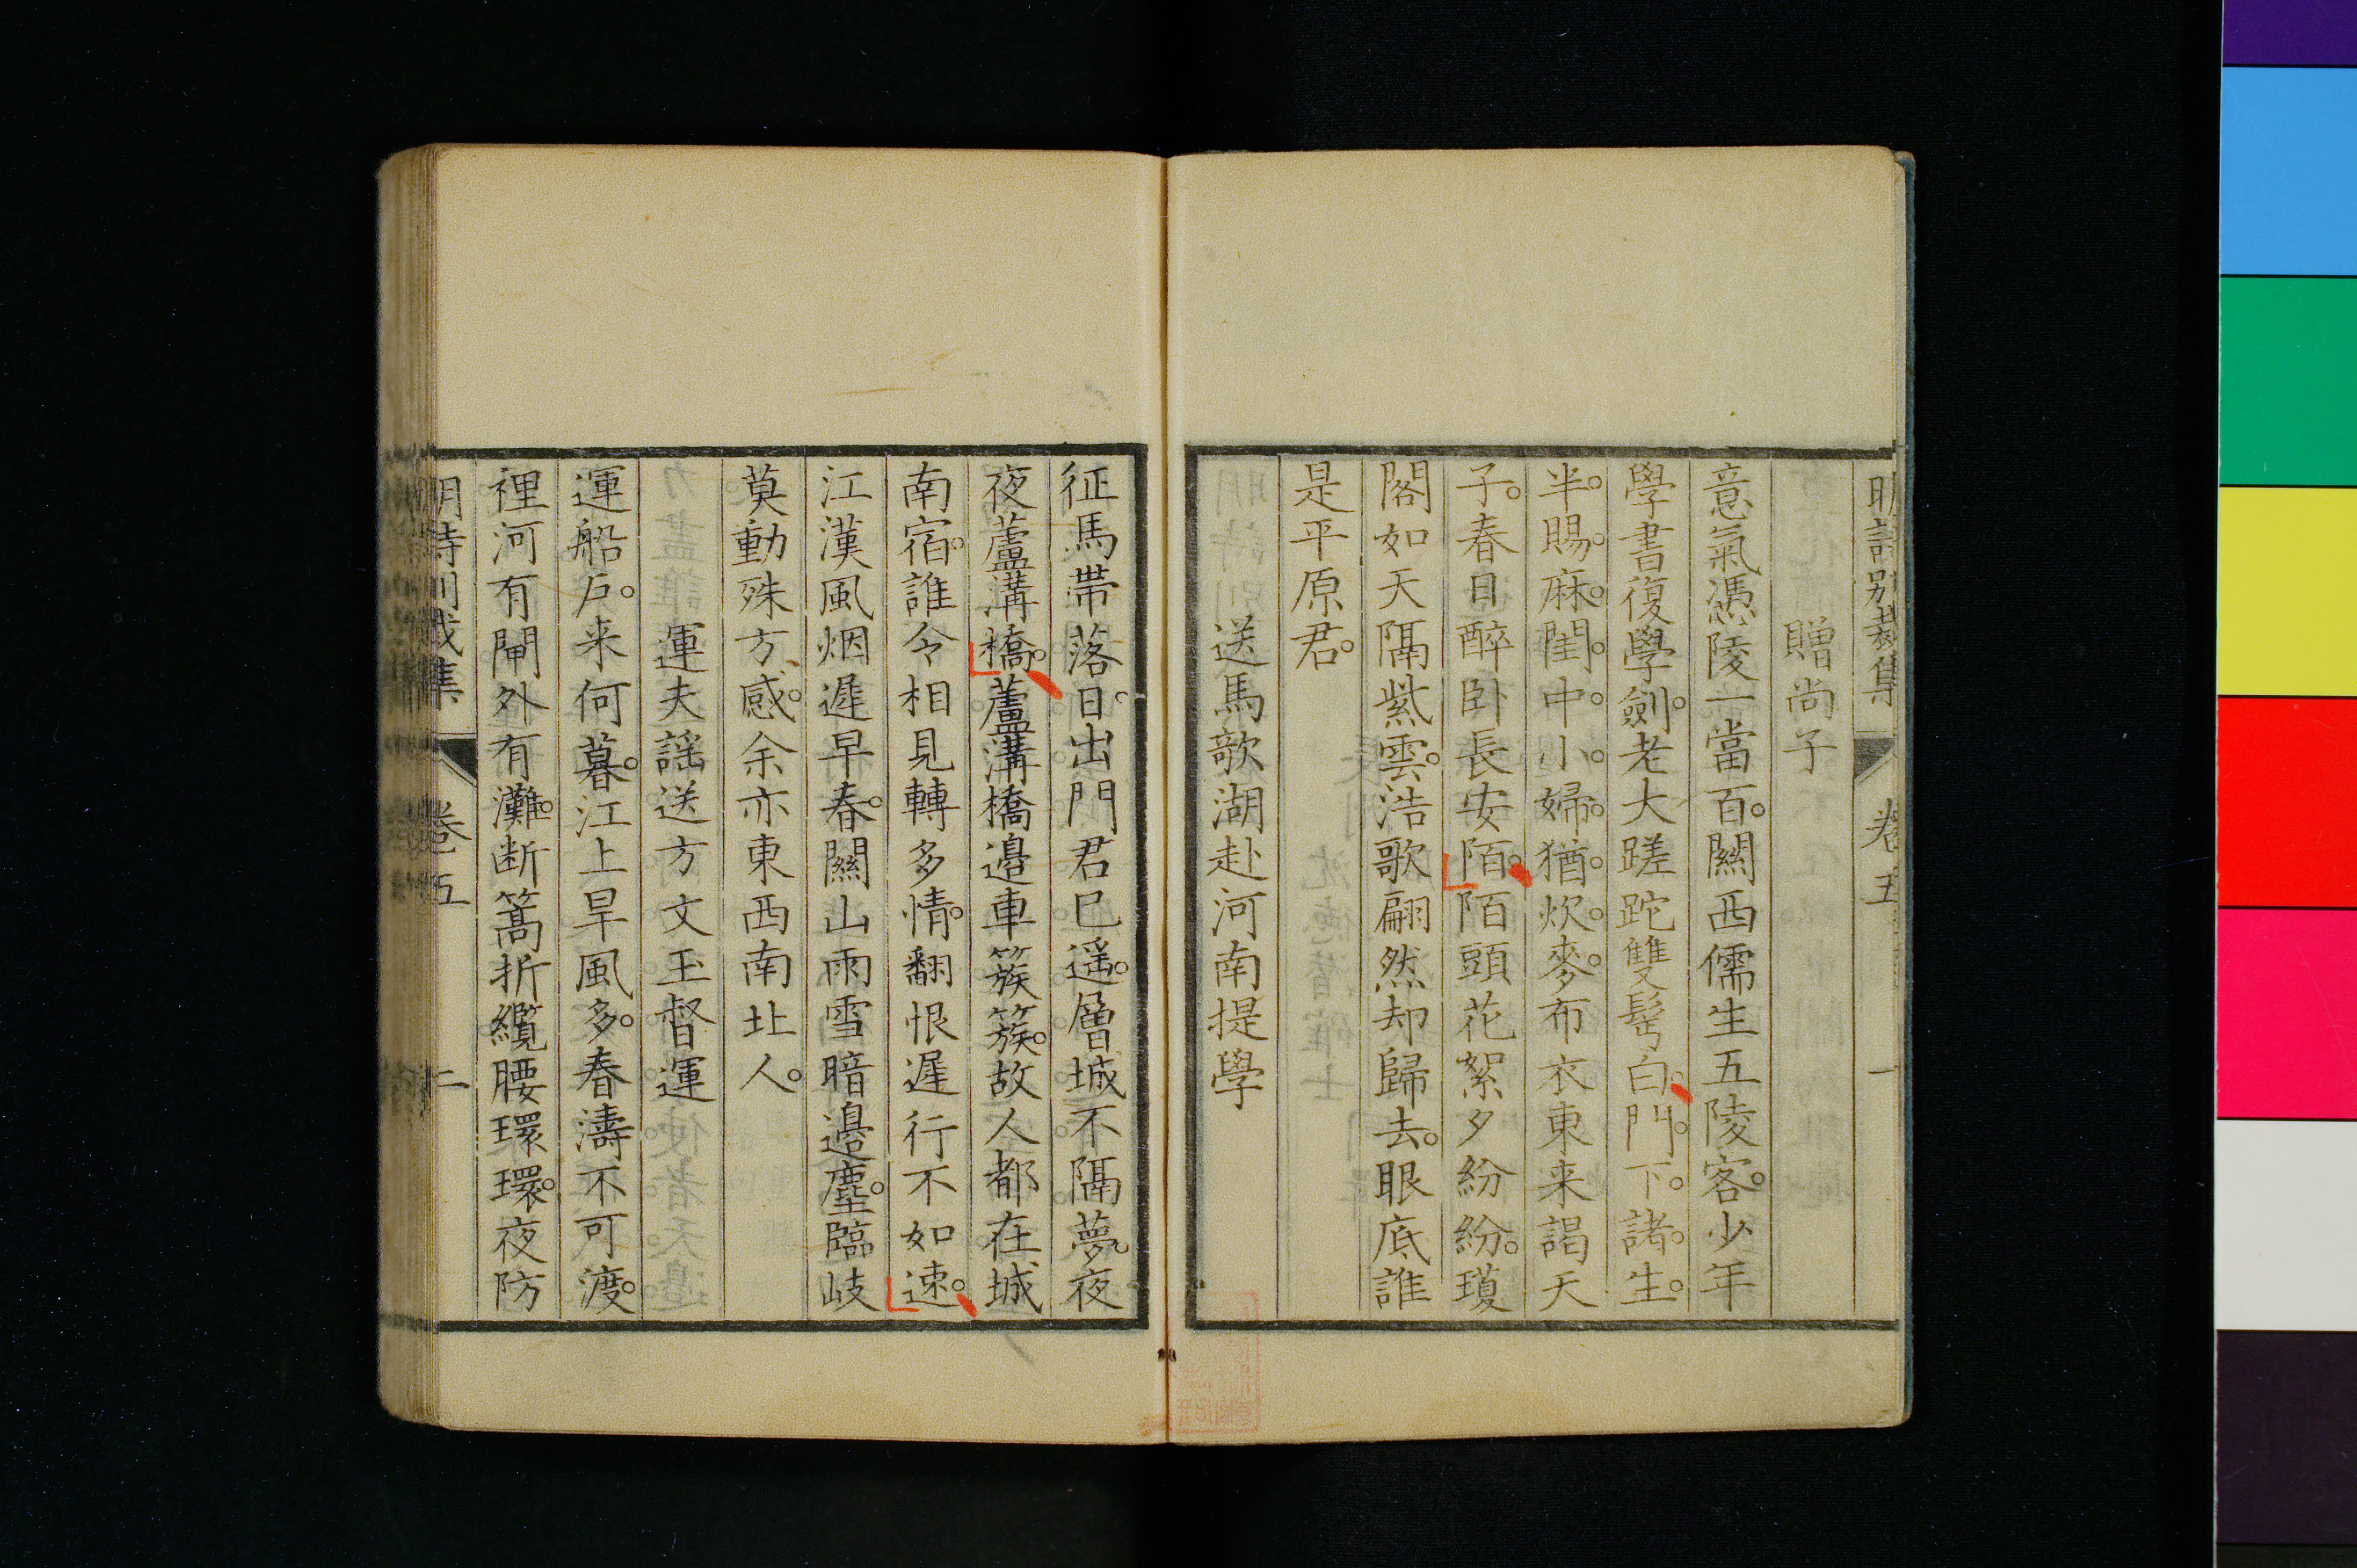 明詩別裁集 卷五 一
贈尚子
意氣憑陵一當百。關西儒生五陵客。少年
學書復學劍。老大蹉跎雙髩白。門。下。諸。生。
半。賜。麻。閨。中。小。婦。猶。炊。麥。布衣東来謁天
子。春日醉卧長安陌。陌頭花絮夕紛紛。瓊
閣如天隔紫雲。浩歌翩然却歸去。眼底誰
是平原君。
送馬歗湖赴河南提學
征馬帶落日。出門君已遥。層城不隔夢。夜
夜蘆溝橋。蘆溝橋邉車簇簇。故人都在城
南宿。誰令相見轉多情。翻恨遲行不如速。
江漢風烟遲早春。關山雨雪暗邉塵。臨岐
莫動殊方感。余亦東西南北人。
運夫謡送方文玉督運
運船户。来何暮。江上旱風多。春濤不可渡。
裡河有閘外有灘。断篙折纜腰環環。夜防
明詩別裁集 卷五 二